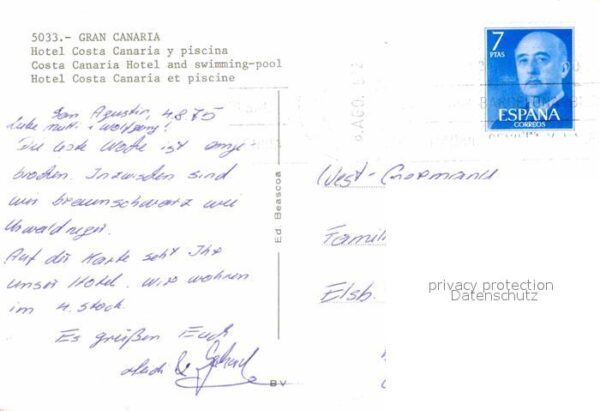 5033.- GRAN CANARIA
Hotel Costa Canaria y piscina
Costa Canaria Hotel and swimming-pool
Hotel Costa Canaria et piscine
7
PTAS
ESPAÑA
CORREOS
San Agustin, 4.8.75
Liebe Mutti + Wolfgang!
Die letzte Woche ist ange
brochen. Inzwischen sind
wir braunschwarz wie
Auf der Karte seht Ihr
unser Hotel. Wir wohnen
im 4. Stock.
Es grüßen Euch
Ed. Beascoa
BV
West-Germania
Famili
Elsb.
privacy protection
Datenschutz